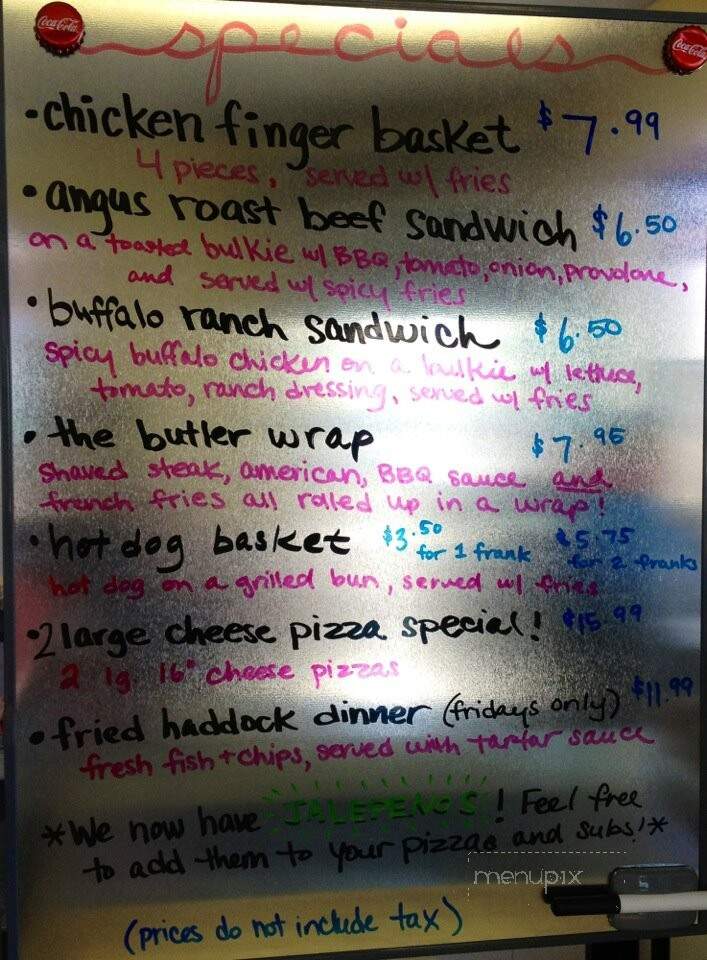 Coca-Cola
Coca-Cola
specials
•chicken finger basket $7.99
4 pieces, served w/ fries
•angus roast beef sandwich $6.50
on a toasted bulkie w/ BBQ, tomato, onion, provolone,
and served w/ spicy fries
•buffalo ranch sandwich $6.50
spicy buffalo chicken on a bulkie w/ lettuce,
tomato, ranch dressing, served w/ fries
•the butler wrap $7.95
shaved steak, american, BBQ sauce and
french fries all roled up in a wrap!
•hot dog basket $3.50 for 1 frank $5.75 for 2 franks
hot dog on a grilled bun, served w/ fries
•2 large cheese pizza special! $15.99
2 lg. 16" cheese pizzas
•fried haddock dinner (fridays only) $11.99
fresh fish + chips, served with tartar sauce
*We now have JALEPENO'S! Feel free
to add them to your pizzas and subs!*
menupix
(prices do not include tax)